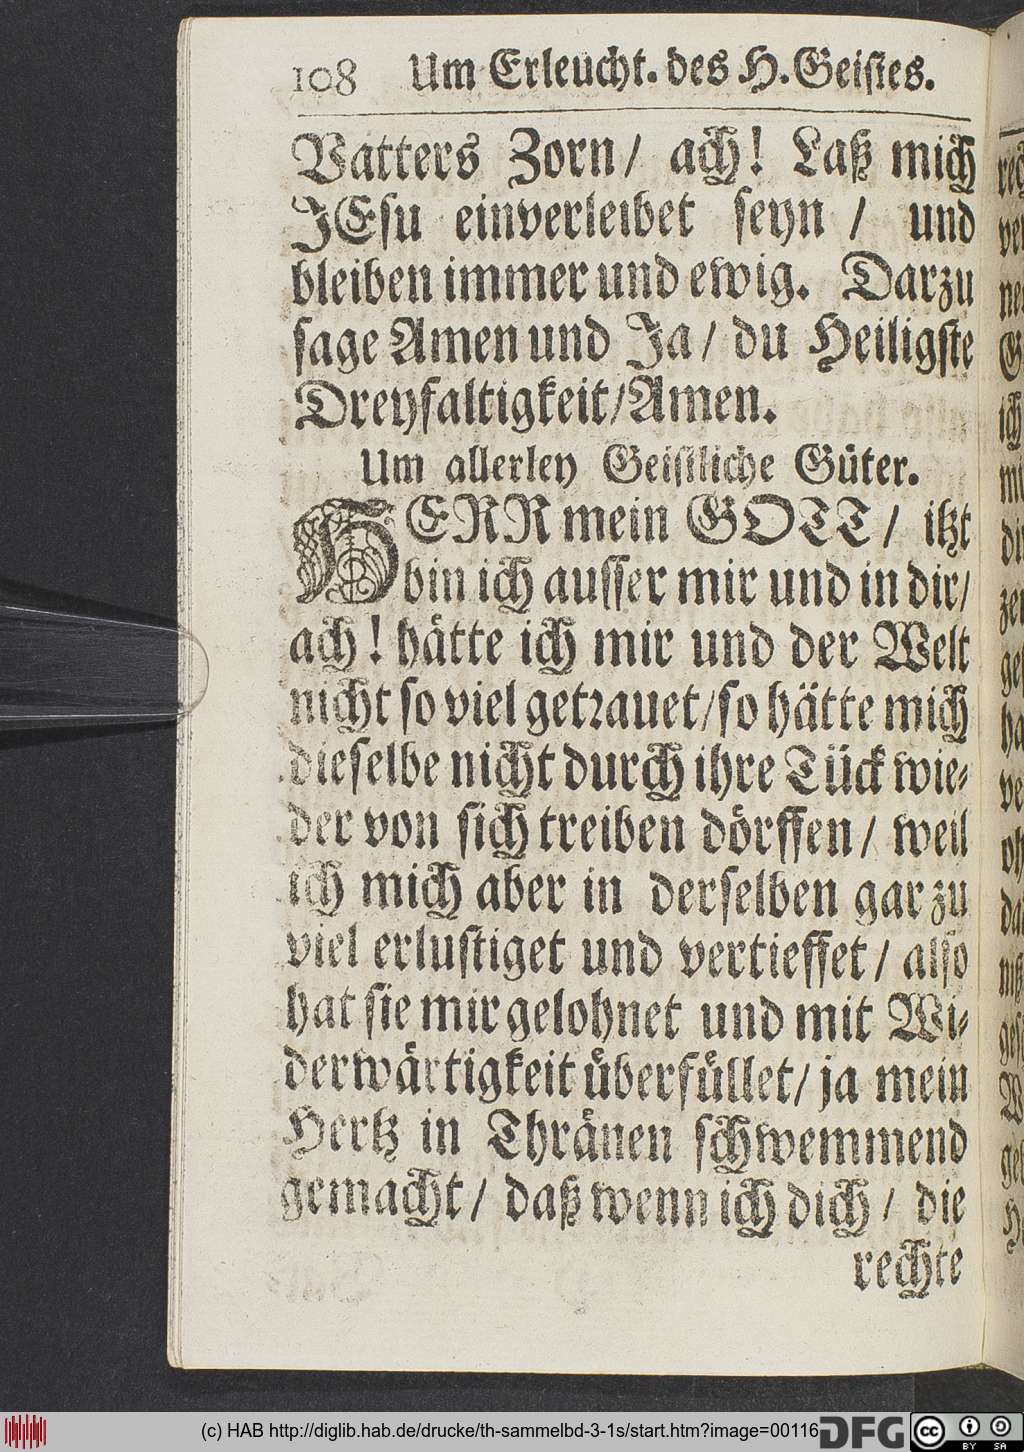 108 Um Erleucht. des H. Geistes.
Vatters Zorn / ach! Laß mich
JEsu einverleibet seyn / und
bleiben immer und ewig. Darzu
sage Amen und Ja / du Heiligste
Dreyfaltigkeit / Amen.
Um allerley Geistliche Güter.
HERR mein GOTT / itzt
bin ich ausser mir und in dir /
ach! hätte ich mir und der Welt
nicht so viel getrauet / so hätte mich
dieselbe nicht durch ihre Tück wie-
der von sich treiben dörffen / weil
ich mich aber in derselben gar zu
viel erlustiget und vertieffet / also
hat sie mir gelohnet und mit Wi-
derwärtigkeit überfüllet / ja mein
Hertz in Thränen schwemmend
gemacht / daß wenn ich dich / die
rechte
(c) HAB http://diglib.hab.de/drucke/th-sammelbd-3-1s/start.htm?image=00116
DFG
cc BY SA